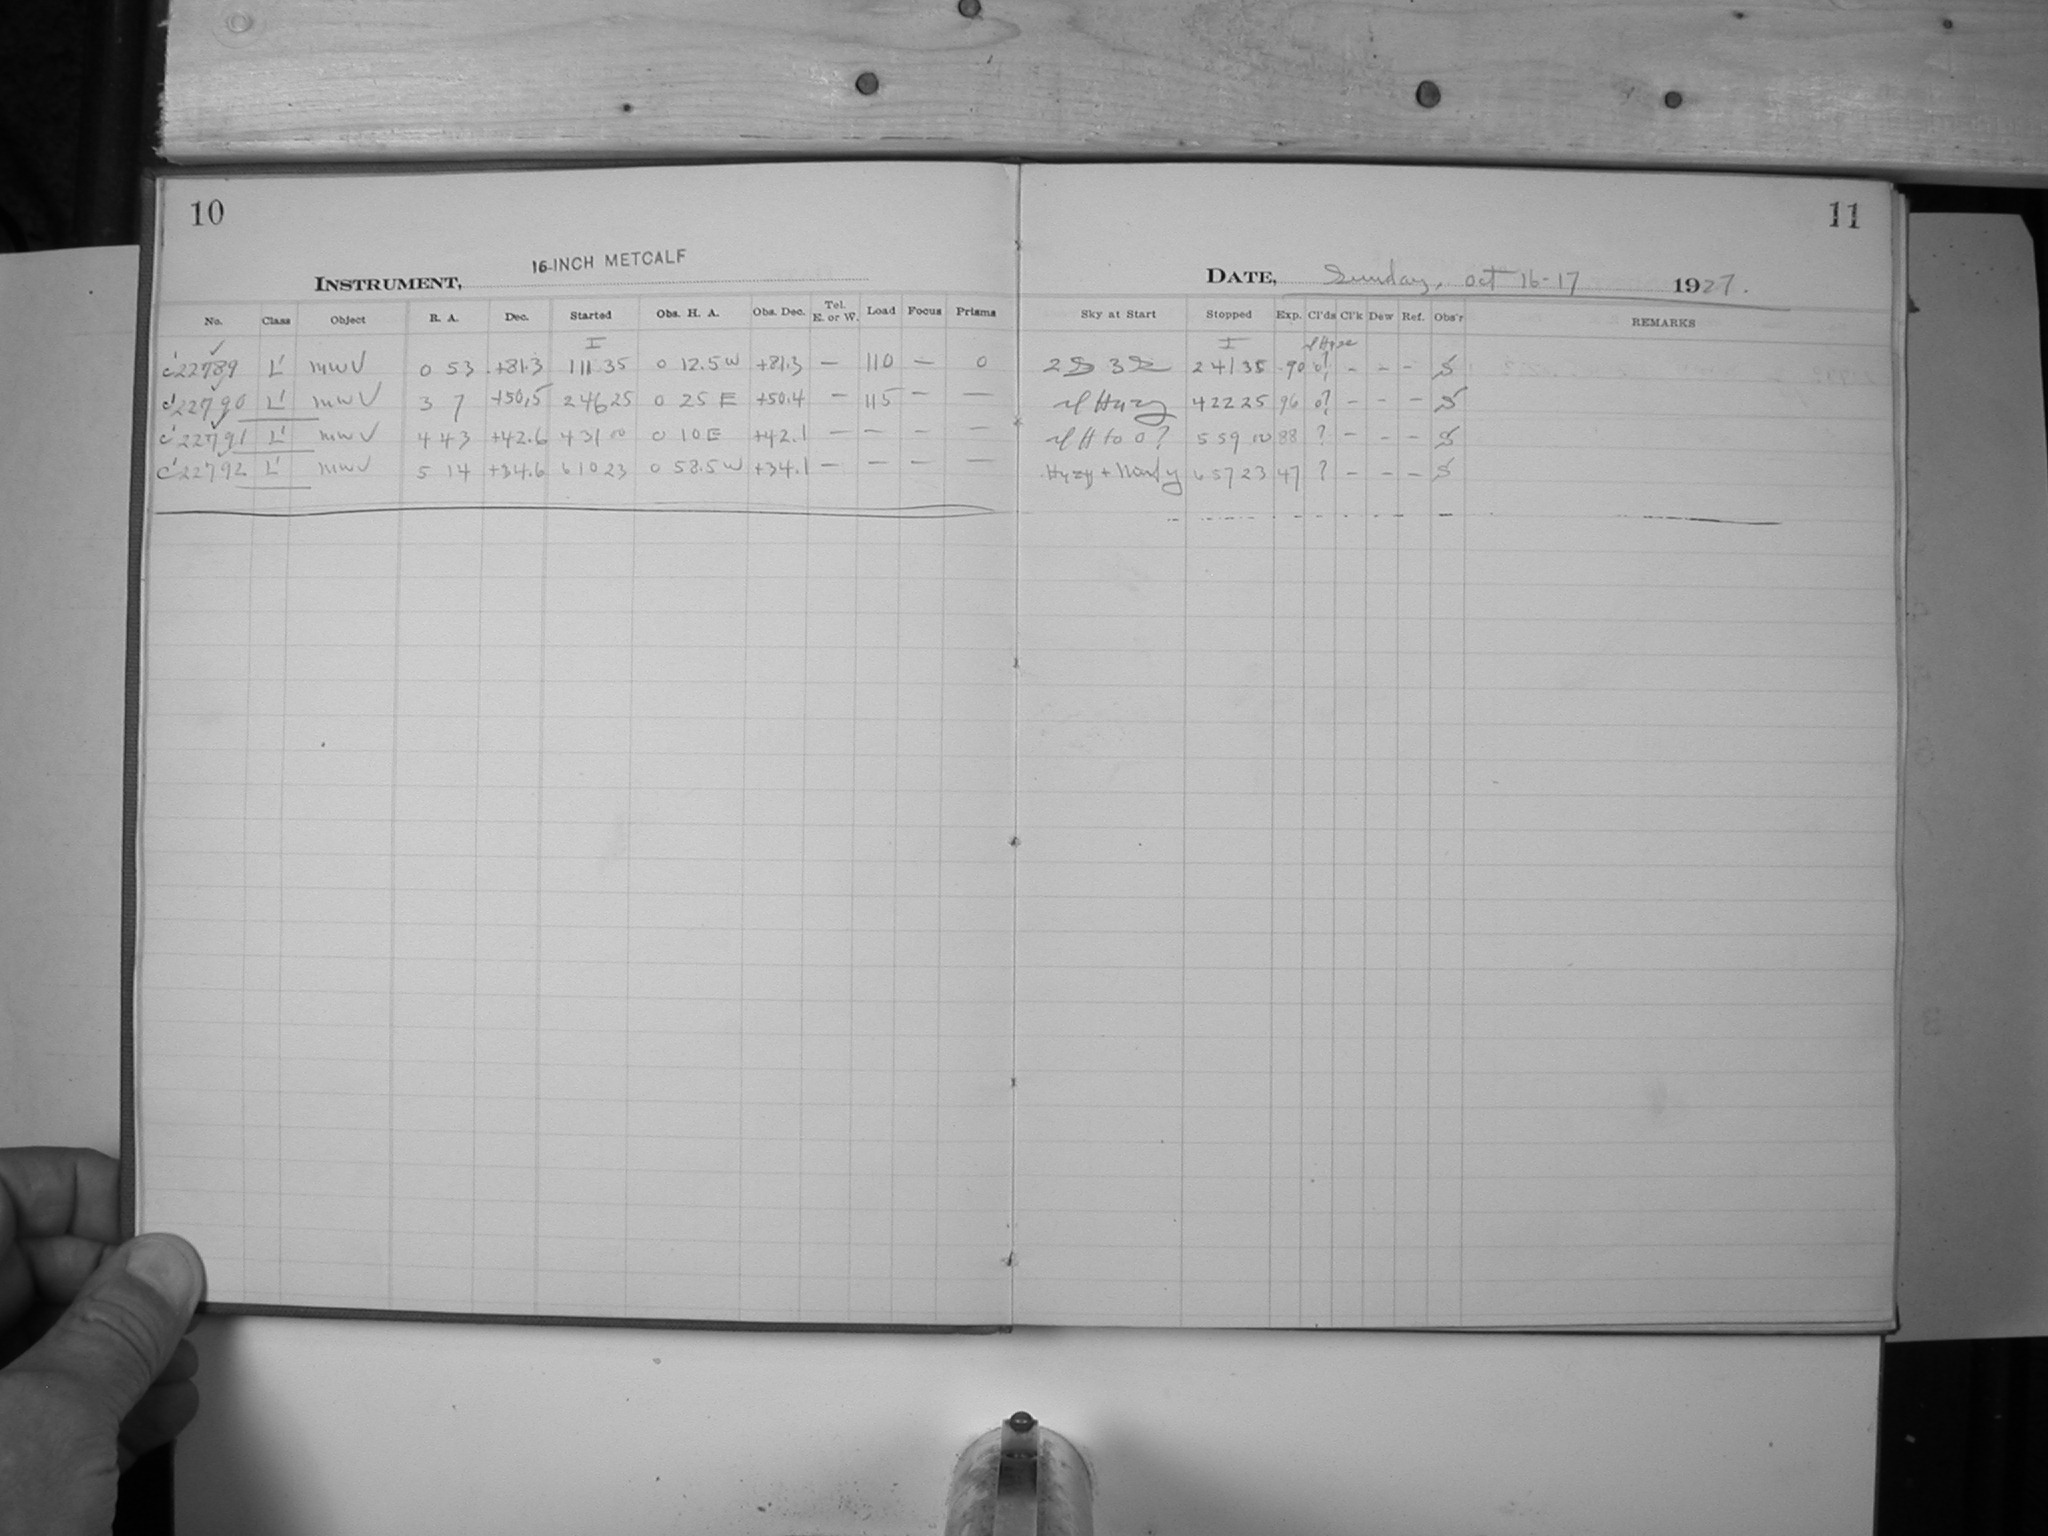 10
16-INCH METCALF
INSTRUMENT,
No. Class Object R. A. Dec. Started Obs. H. A. Obs. Dec. Tel. E. or W. Load Focus Prisms
I
c'22789 L' MWV 0 53 +81.3 1 11 35 0 12.5 W +81.3 — 110 — 0
c'22790 L' MWV 3 7 +50.5 2 46 25 0 25 E +50.4 — 115 — —
c'22791 L' MWV 4 43 +42.6 4 31 00 0 10 E +42.1 — — — —
c'22792 L' MWV 5 14 +34.6 6 10 23 0 58.5 W +34.1 — — — —
11
DATE, Sunday, Oct 16-17 1927.
Sky at Start Stopped Exp. Cl'ds Cl'k Dew Ref. Obs'r REMARKS
I
2 41 35 90 0? - - - S
4 22 25 96 0? - - - S
H to 0? 5 59 10 88 ? - - - S
Hazy + 6 57 23 47 ? - - - S